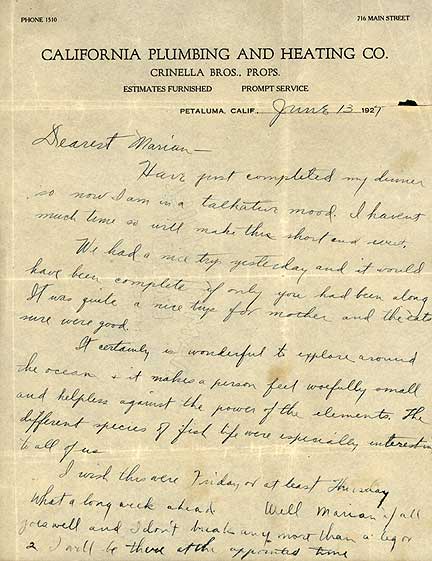 PHONE 1510 716 MAIN STREET
CALIFORNIA PLUMBING AND HEATING CO.
CRINELLA BROS., PROPS.
ESTIMATES FURNISHED PROMPT SERVICE
PETALUMA, CALIF., June 13 1927
Dearest Marian—
Have just completed my dinner
so now I am in a talkative mood. I havent
much time so will make this short and sweet.
We had a nice trip yesterday and it would
have been complete if only you had been along
It was quite a nice trip for mother and the eats
sure were good.
It certainly is wonderful to explore around
the ocean & it makes a person feel woefully small
and helpless against the power of the elements. The
different species of fish life were especially interestin
to all of us
I wish this were Friday or at least Thursday
What a long week ahead Well Marian if all
goes well and I don't break any more than a leg or
2 I will be there at the appointed time